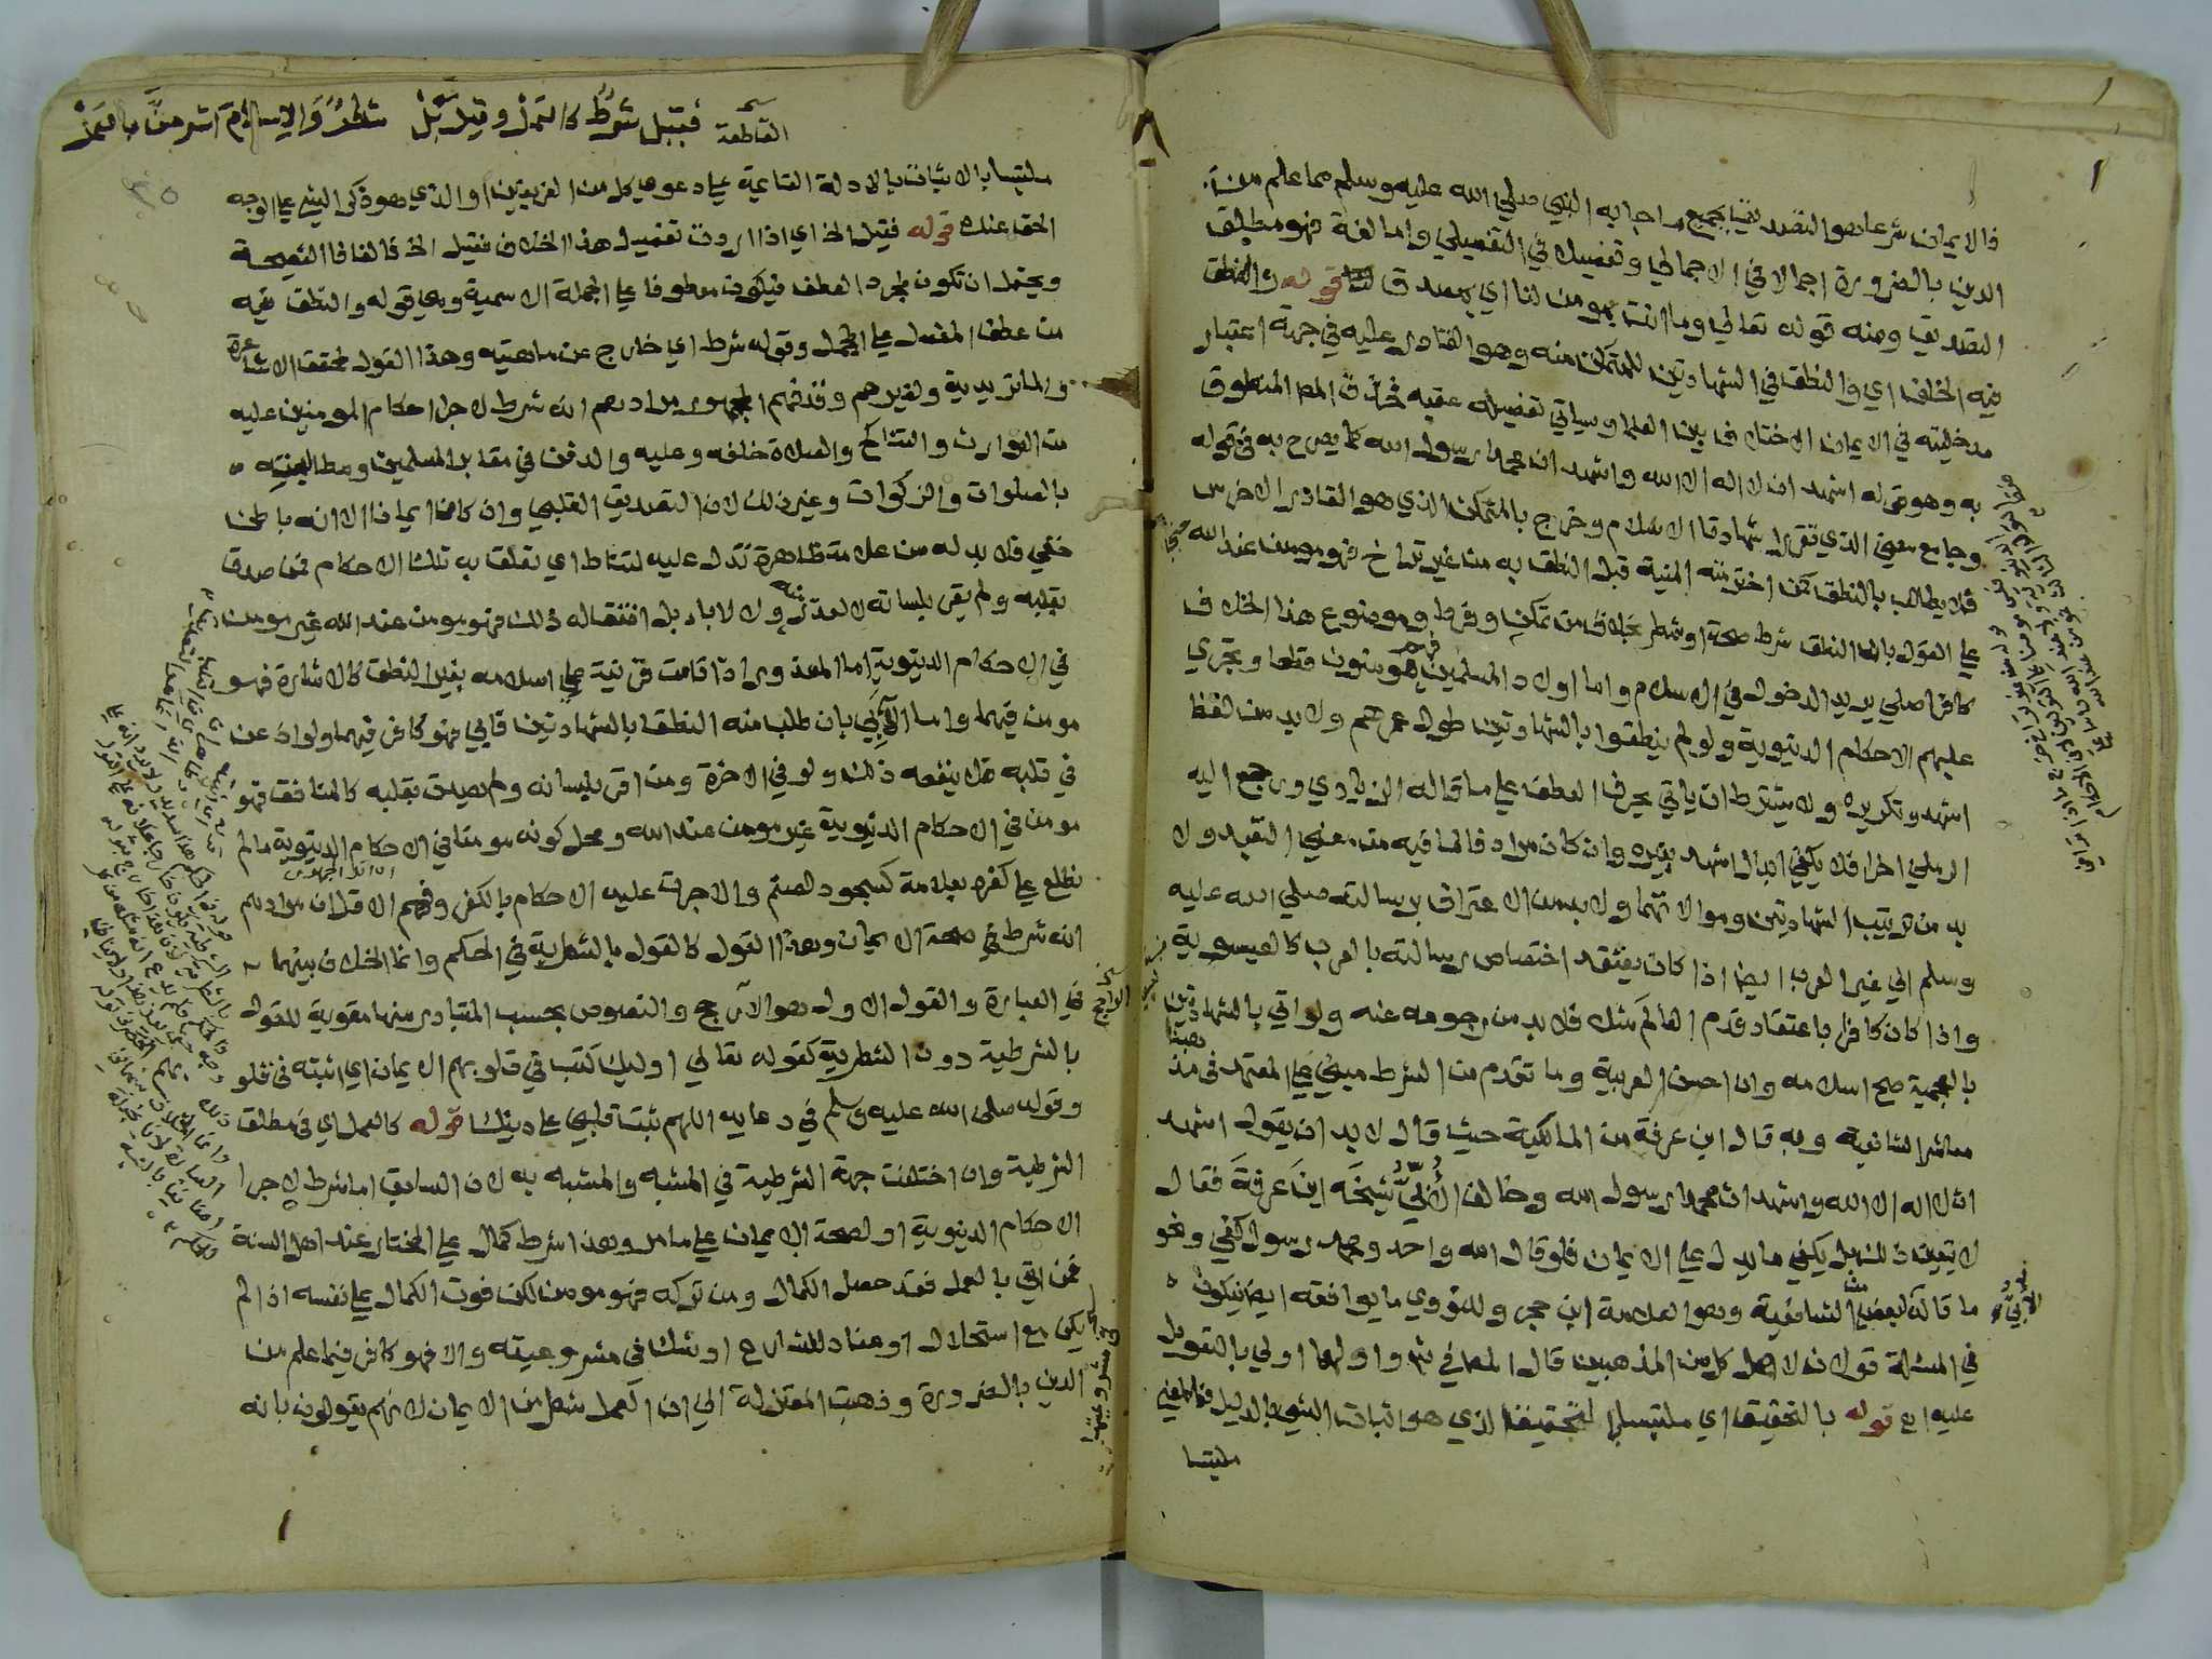 فالايمان شرعا هو التصديق بجميع ما جا به النبي صلي الله عليه وسلم مما علم من
الدين بالضرورة اجمالا في الاجمالي وتفصيلا في التفصيلي واما لغة فهو مطلق
التصديق ومنه قوله تعالي وما انت بمومن لنا اي بمصدق قوله والنطق
فيه الخلف اي والنطق في الشهادتين للمتمكن منه وهو القادر عليه في جهة اعتبار
مدخليته في الايمان الاختلاف بين العلما وسياتي تفصيله عقبه فحذف المص المنطوق
به وهو قوله اشهد ان لا اله الا الله واشهد ان محمدا رسول الله كما يصرح به في قوله
وجامع معني الذي تقررا شهادتا الاسلام وخرج بالمتمكن الذي هو القادر الاخرس
فلا يطالب بالنطق كمن اخترمته المنية قبل النطق به من غير تراخ فهو مومن عند الله
علي القول بان النطق شرط صحة او شطر بخلاف من تمكن وفرط وموضوع هذا الخلاف
كافر اصلي يريد الدخول في الاسلام واما اولاد المسلمين فهم مومنون قطعا وتجري
عليهم الاحكام الدنيوية ولو لم ينطقوا بالشهادتين طول عمرهم ولا بد من لفظ
اشهد وتكريره ولا يشترط ان ياتي بحرف العطف علي ما قاله الزيادي ورجع اليه
الرملي اخرا فلا يكفي ابدال اشهد بغيره وان كان مرادفا لما فيه من معني التعبد ولا
بد من ترتيب الشهادتين وموالاتهما ولا بد من الاعتراف برسالته صلي الله عليه
وسلم الي غير العرب ايضا اذا كان يعتقد اختصاص رسالته بالعرب كالعيسوية
واذا كان كافرا باعتقاد قدم العالم مثلا فلا بد من رجوعه عنه ولو اتي بالشهادتين
بالعجمية صح اسلامه وان احسن العربية وما تقدم من الشرط مبني علي المعتمد في مذهبنا
معاشر الشافعية وبه قال ابن عرفة من المالكية حيث قال لا بد ان يقول اشهد
ان لا اله الا الله واشهد ان محمدا رسول الله وخالف الأبي شيخه ابن عرفة فقال
لا يتعين ذلك بل يكفي ما يدل علي الايمان فلو قال الله واحد ومحمد رسول كفي ونحو
ما قاله لبعض من الشافعية وهو العلامة ابن حجر وللنووي ما يوافقه ايضا فيكون
في المسئلة قولان لاهل كل من المذهبين قال المص في شرحه واولهما اولي بالتعويل
عليه اه قوله بالتحقيق اي ملتبسا بالتحقيق الذي هو اثبات الشي بالدليل فالمعني
ملتبسا
القاطعة فقيل شرط كالعمل وقيل بل شطر والاسلام اشرحن بالعمل
ملتبسا بالاثبات بالادلة القائمة علي دعوي كل من الفريقين او الذي هو ذكر الشي علي الوجه
الحق عنده قوله فقيل الخ اي اذا اردت تفصيل هذا الخلاف فقيل الخ فالفا فا الفصيحة
ويحتمل ان تكون لمجرد العطف فيكون معطوفا علي الجملة الاسمية وهي قوله والنطق فيه
من عطف المفصل علي المجمل وقوله شرط اي خارج عن ماهيته وهذا القول لمحققي الاشاعرة
والماتريدية ولغيرهم وقد فهم الجمهور مرادهم انه شرط لاجرا احكام المومنين عليه
من التوارث والتناكح والصلاة خلفه وعليه والدفن في مقابر المسلمين ومطالبته
بالصلوات والزكوات وغير ذلك لان التصديق القلبي وان كان ايمانا الا انه باطن
خفي فلا بد له من علامة ظاهرة تدل عليه لتناط اي تعلق به تلك الاحكام فمن صدق
بقلبه ولم يقر بلسانه لا لعذر منعه ولا لاباء بل اتفق له ذلك فهو مومن عند الله غير مومن
في الاحكام الدنيوية اما المعذور اذا قامت قرينة علي اسلامه بغير النطق كالاشارة فهو
مومن فيهما واما الآبي بان طلب منه النطق بالشهادتين فابي فهو كافر فيهما ولو اذعن
في قلبه فلا ينفعه ذلك ولو في الاخرة ومن اقر بلسانه ولم يصدق بقلبه كالمنافق فهو
مومن في الاحكام الدنيوية غير مومن عند الله ومحل كونه مومنا في الاحكام الدنيوية ما لم
نطلع علي كفره بعلامة كسجود لصنم والا جرت عليه الاحكام بالكفر وفهم الاقل ان مرادهم
انه شرط في صحة الايمان وهذا القول كالقول بالشطرية في الحكم وانما الخلاف بينهما
في العبارة والقول الاول هو الارجح والنصوص بحسب المتبادر منها مقوية للقول
بالشرطية دون الشطرية كقوله تعالي اوليك كتب في قلوبهم الايمان اي اثبته في قلو
وقوله صلي الله عليه وسلم في دعايه اللهم ثبت قلبي علي دينك قوله كالعمل اي في مطلق
الشرطية وان اختلفت جهة الشرطية في المشبه والمشبه به لان السابق اما شرط لاجرا
الاحكام الدنيوية او لصحة الايمان علي ما مر وهذا شرط كمال علي المختار عند اهل السنة
فمن اتي بالعمل فقد حصل الكمال ومن تركه فهو مومن لكن فوت الكمال علي نفسه اذا لم
يكن مع استحلال او عناد للشارح او شك في مشروعيته والا فهو كافر فيما علم من
الدين بالضرورة وذهبت المعتزلة الي ان العمل شطر من الايمان لانهم يقولون بانه